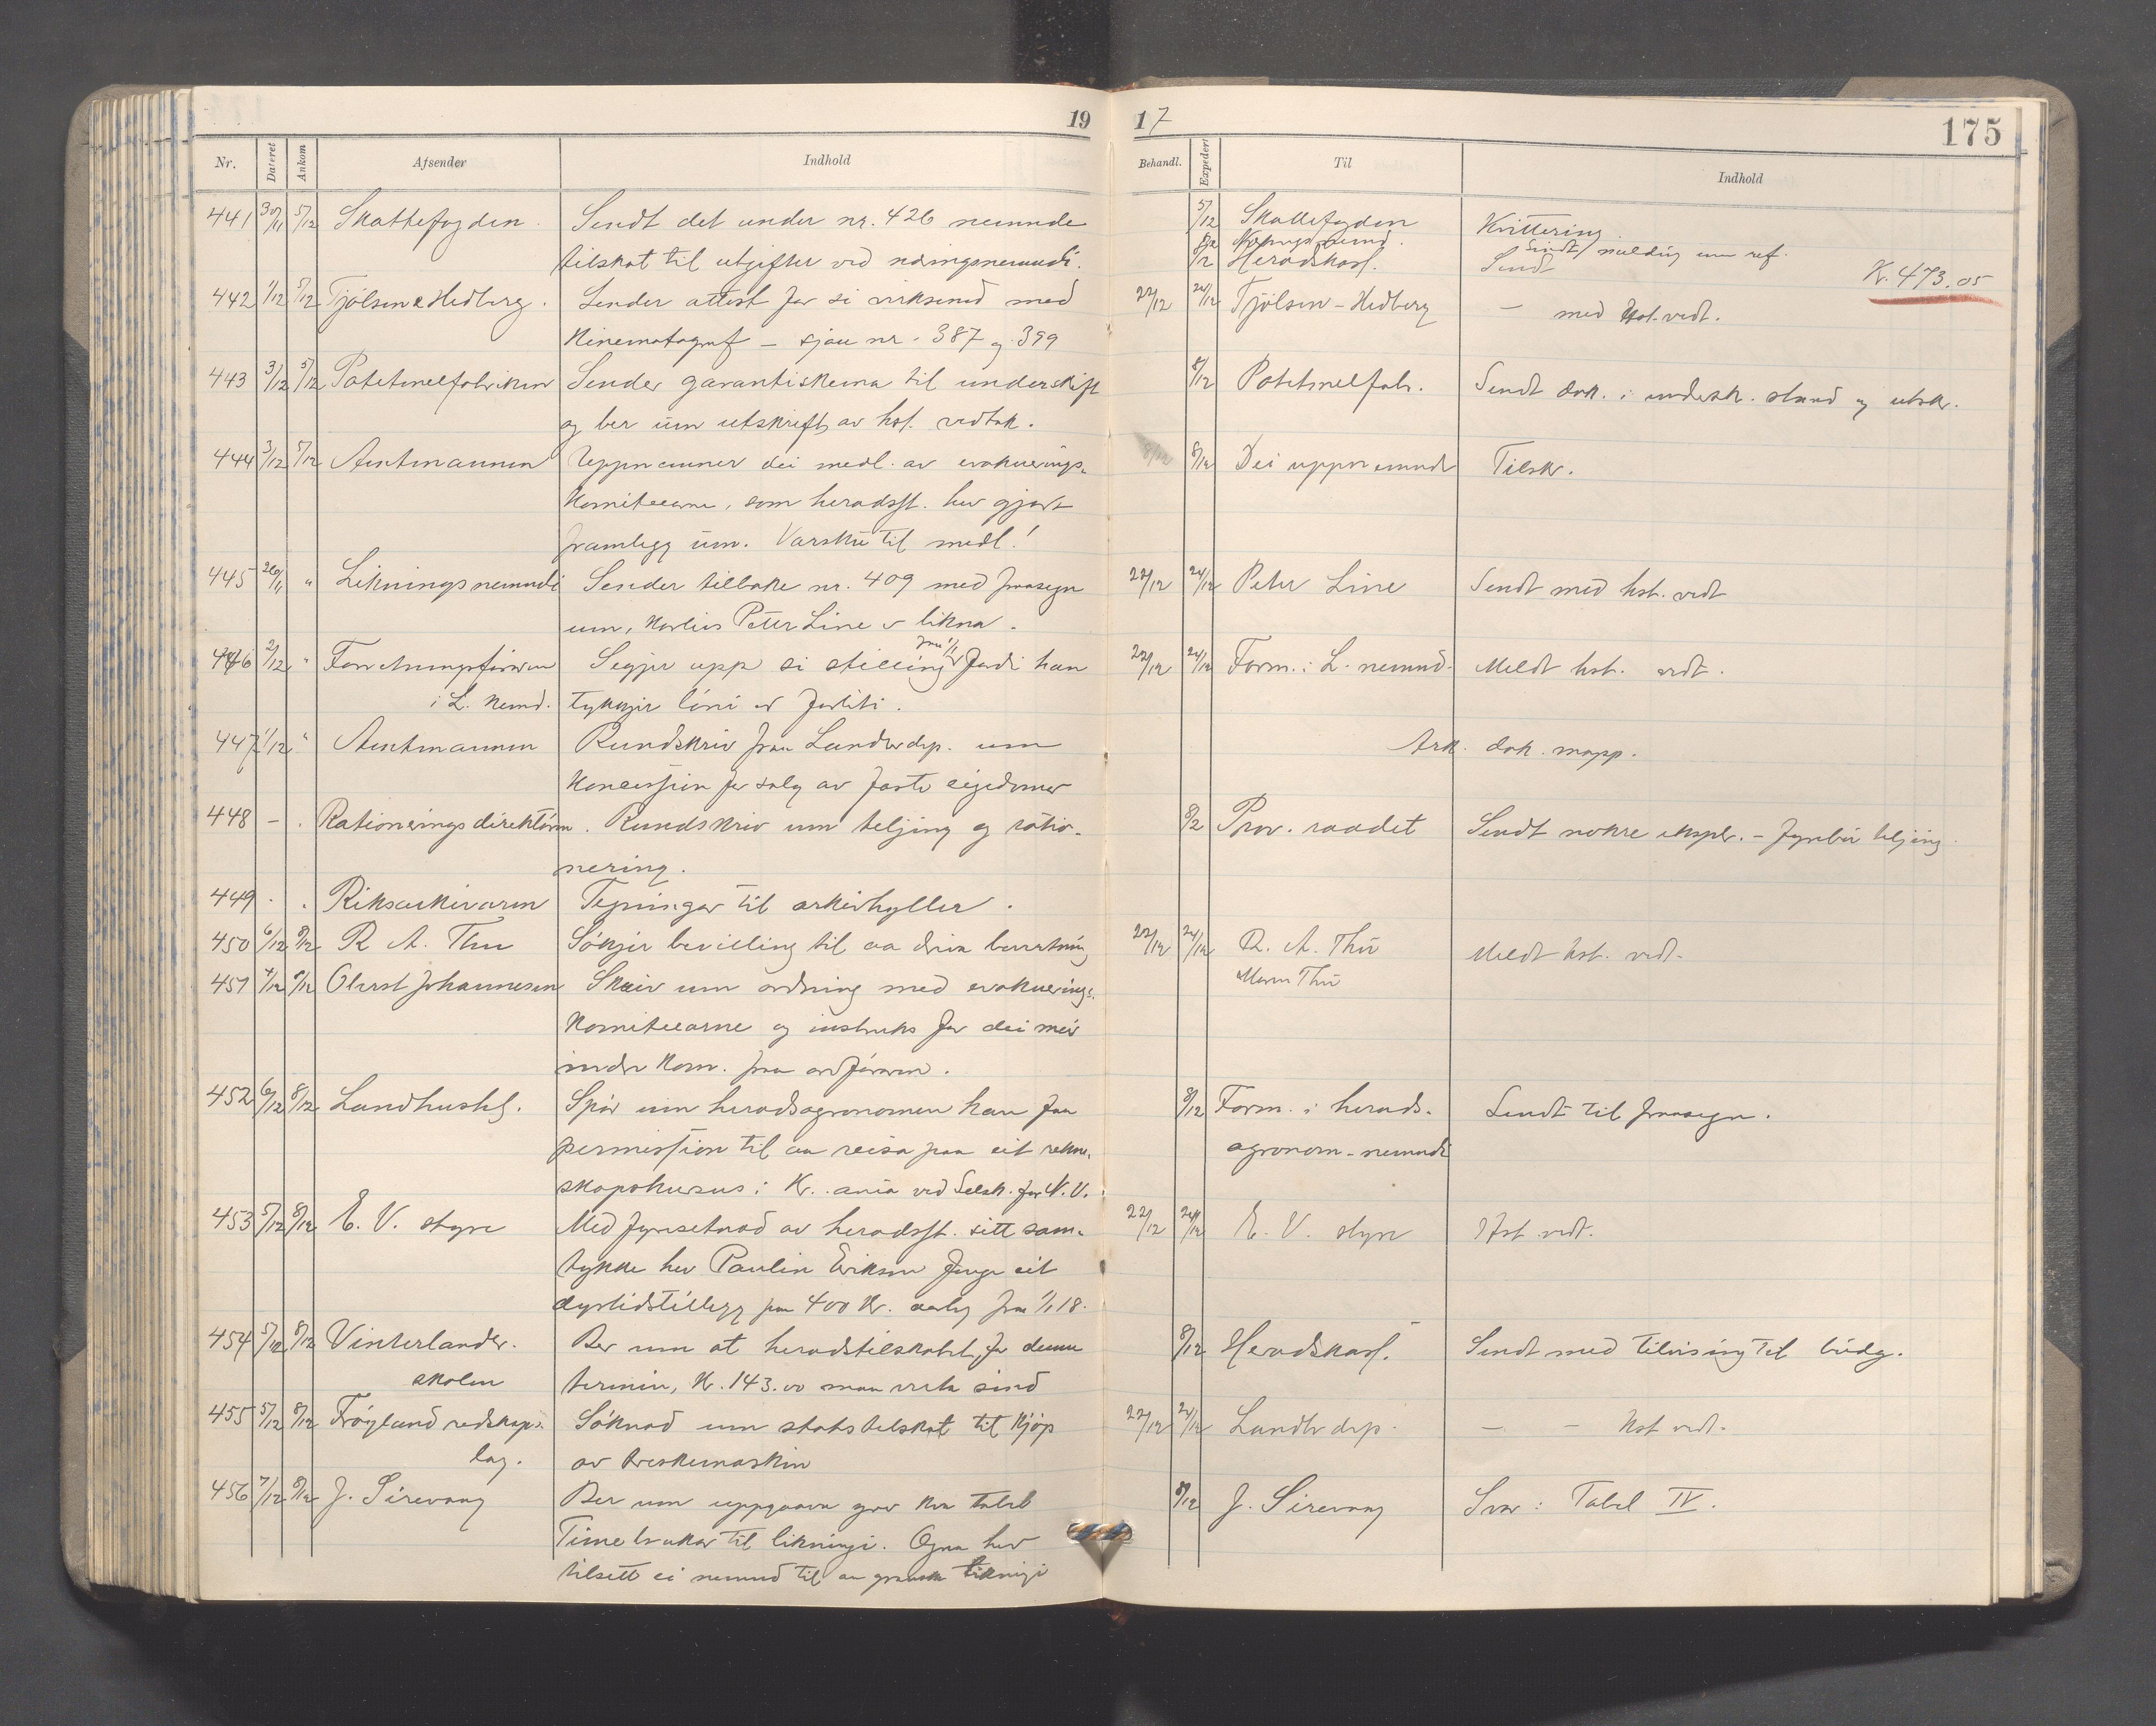 19
Nr. Dateret Ankom Afsender Indhold
441 30/11 5/12 Skattefogden. Sendt det under nr. 426 nemnde
tilskot til utgifter ved næringsnemndi.
442 1/12 5/12 Tjölsen & Hedberg. Sender attest for si virksemd med
Kinematograf – sjaa nr. 387 og 399
443 3/12 5/12 Potetmelfabriken Sender garantiskema til underskrift
og ber um utskrift av hst. vedtak.
444 3/12 5/12 Amtmannen Uppnemner dei medl. av evakuerings-
komiteearne, som heradsst. hev gjort
framlegg um. Varsku til medl!
445 26/11 " Likningsnemndi Sender tilbake nr. 409 med fraasegn
um, Peter Line er likna.
446 2/12 " Forretningsföraren Segjer upp si stilling fraa 1/1 fordi han
i L. nemd. tykkjer löni er for liti.
447 1/12 " Amtmannen Rundskriv fraa Landbrdep. um
Koncession for salg av faste eigedomar
448 – . Rationeringsdirektören. Rundskriv um teljing og ratio-
nering.
449 . . Riksarkivaren Tepningar til arkivhyller.
450 6/12 8/12 R. A. Thu Sökjer bevilling til aa driva
451 4/12 8/12 Oberst Johannesen Skriv um ordning med evakuerings-
komiteearne og instruks for dei
indre kom. fraa ordföraren.
452 6/12 8/12 Landhushs. Spör um heradsagronomen kan faa
permission til aa reisa paa eit rekne-
skapskursus i Kr.ania ved Selsk. for N. V.
453 5/12 8/12 E. V. styre Med fyresetnad av heradsst. sitt sam-
tykke hev Paulin Erikson fenge eit
dyrtidstillegg paa 400 Kr. aarleg fraa 1/1 18.
454 5/12 8/12 Vinterlandbr. Ber um at heradstilskotet for denne
skolen termin, Kr. 143.00 maa verta send
455 5/12 8/12 Fröyland redskaps- Söknad um statstilskot til kjöp
lag. av treskemaskin
456 7/12 8/12 J. Sirevaag Ber um uppgaava yver kva tabel
Time brukar til likningi. Ogna hev
tilsett ei nemnd til aa granska likningi
17
175
Behandl. Expedert Til Indhold
5/12 Skattefogden Kvittering
Nærings nemd. Sendt melding um ref.
Heradskass. Sendt Kr. 473.05
22/12 24/12 Tjölsen – Hedberg – med hst. vedt.
8/12 Potetmelfab. Sendt dok. i undersk. stand og utskr.
8/12 8/12 Dei uppnemnde Tilskr.
22/12 24/12 Peter Line Sendt med hst. vedt
22/12 24/12 Form. i L. nemnd. Meldt hst. vedt.
Ark. dok. mapp.
8/12 Prov. raadet Sendt nokre ekspl. – fyrebur teljing.
22/12 24/12 R. A. Thu Meldt hst. vedt.
Thu
8/12 Form. i herads- Sendt til fraasegn.
agronom-nemndi
22/12 24/12 E. V. styre Hst. vedt.
8/12 Heradskass. Sendt med tilvising til budg.
22/12 24/12 Landbr dep. – – Hst vedt.
8/12 J. Sirevaag Svar: Tabel IV.